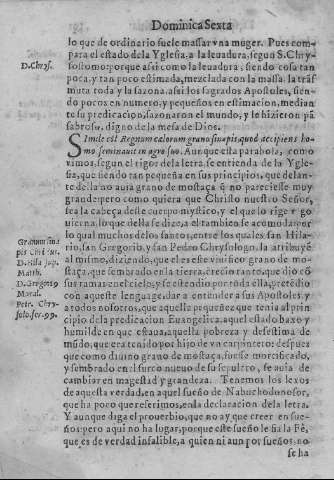 Dominica Sexta
lo que de ordinario suele massar vna muger. Pues com-
para el estado de la Yglesia, a la leuadura, segun S. Chry-
D. Chrys.
sostomo: porque assi como la leuadura, siendo cosa tan
poca, y tan poco estimada, mezclada con la massa la tras
muta toda y la sazona: assi los sagrados Apostoles, sien-
do pocos en numero, y pequeños en estimacion, median
te su predicacion, sazonaron el mundo, y le hizieron pã
sabroso, digno de la mesa de Dios.
Simile est Regnum cælorum grano sinapis, quod accipiens ho-
mo seminauit in agro suo. Aunque esta parabola, como
vimos, segun el rigor de la letra, se entienda de la Ygle-
sia, que siendo tan pequeña en sus principios, que delan-
te della no auia grano de mostaça q̃ no pareciesse muy
grande: pero como quiera que Christo nuestro Señor,
sea la cabeça deste cuerpo mystico, y el que lo rige y go
uierna, lo que della se dize, a el tambien se acomoda: por
lo qual muchos delos santos, entre los quales san Hila-
Granum sina
rio, san Gregorio, y san Pedro Chrysologo, la atribuyẽ
pis Christus.
al mismo, diziendo, que el es este viuifico grano de mo-
D. Hila sup.
staça, que sembrado en la tierra, crecio tanto, que dio cõ
Matth.
sus ramas en el cielo, y se estendio por toda ella, pretẽdiẽ
D. Gregorio
do con aqueste lenguage, dar a entender a sus Apostoles, y
Moral.
a todos nosotros, que aquella pequeñez que tenia al prin
Petr. Chry-
cipio dela predicacion Euangelica, aquel estado baxo y
solo. ser. 99.
humilde en que estaua, aquella pobreza y desestima de
mũdo, que era tenido por hijo de vn carpintero: despues
que como diuino grano de mostaça, fuesse mortificado,
y sembrado en el surco nueuo de su sepulcro, se auia de
cambiar en magestad y grandeza. Tenemos los lexos
de aquesta verdad, en aquel sueño de Nabuchodonosor,
que ha poco que referimos, en la declaracion de la letra.
Y aunque diga el prouerbio, que no ay que creer en sue-
ños: pero aqui no ha lugar, porque este sueño le fia la Fè,
que es de verdad infalible, a quien ni aun por sueños no
se ha